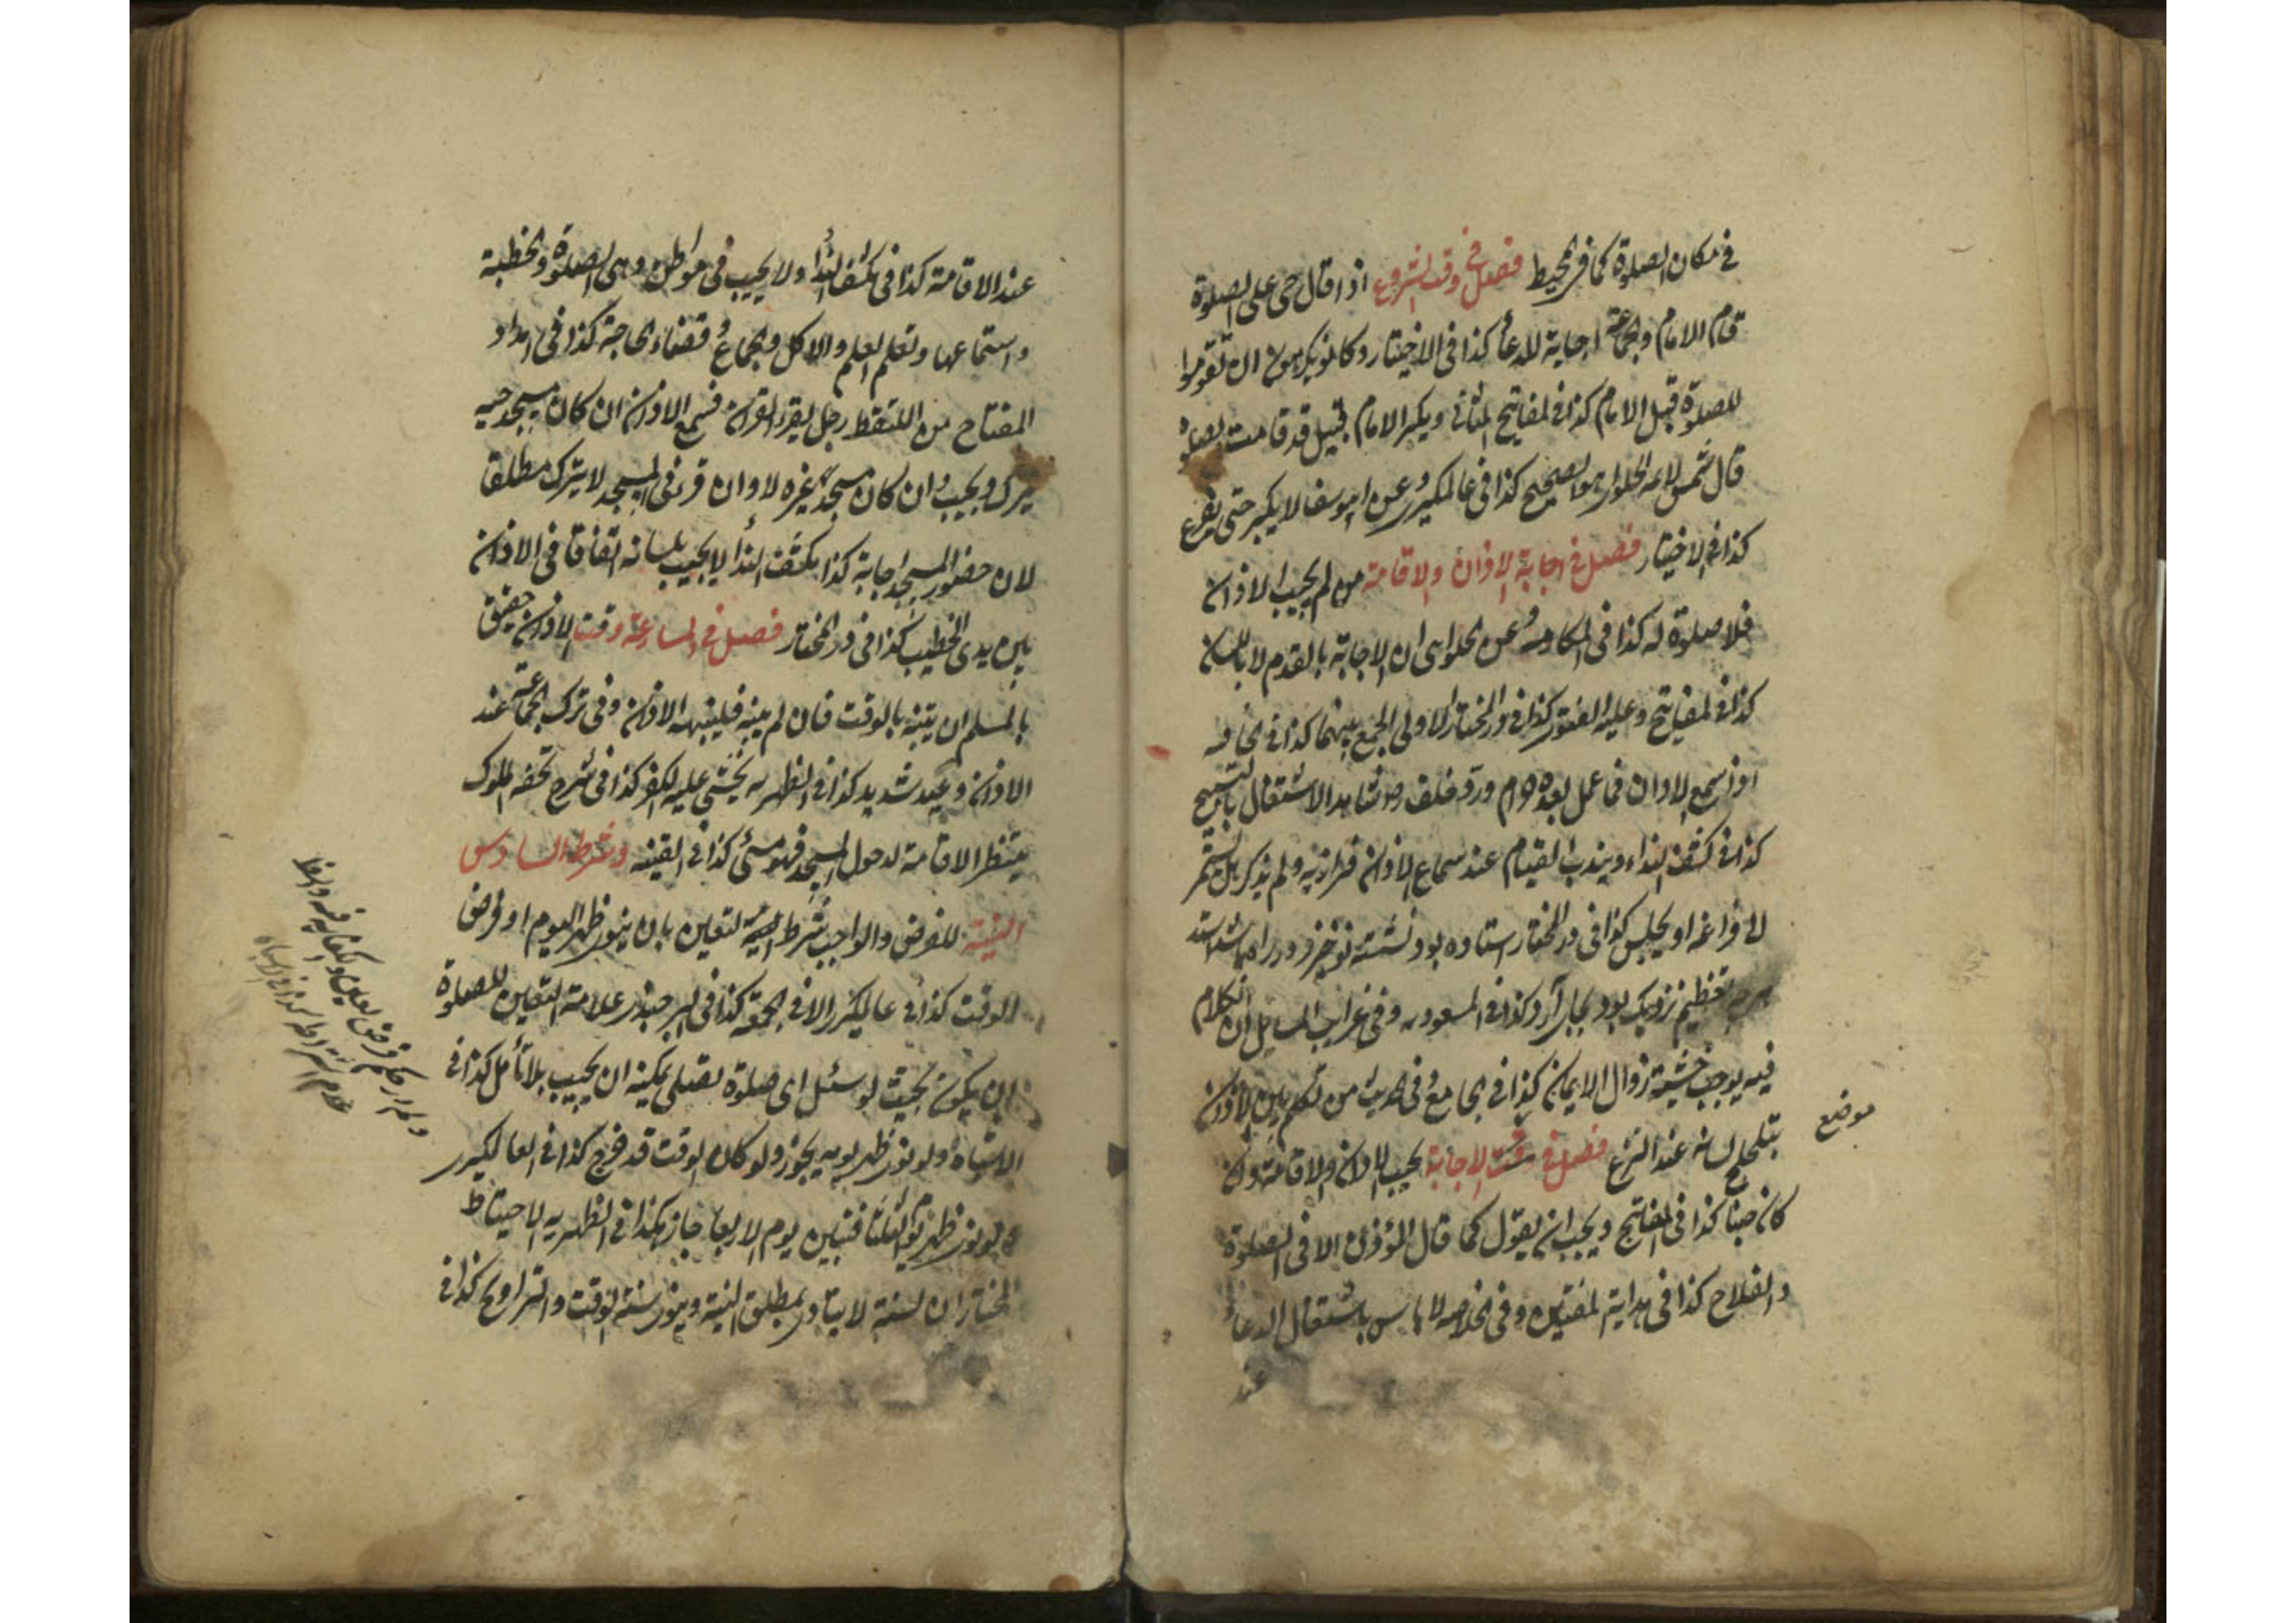 في مكان الصلوة كما في المحيط فصل في وقت الشروع اذا قال حي على الصلوة
قام الامام والجماعة اجابة للدعاء كذا في الاختيار وكانوا يكرهون ان تقوموا
للصلوة قبل الامام كذا في المفاتيح ويكبر الامام قبيل قد قامت الصلوة
قال شمس الائمة الحلواني هو الصحيح كذا في عالمكيري وعن ابيوسف لا يكبر حتى يفرغ
كذا في الاختيار فصل في اجابة الاذان والاقامة من لم يجيب الاذان
فلا صلوة له كذا في وعن الحلواني ان الاجابة بالقدم لا باللسان
كذا في المفاتيح وعليه الفتوى كذا في در المختار الاولى الجمع بينهما كذا في
اذا سمع الاذان فما عمل بعده حرام الاشتغال بالتسبيح
كذا في كشف النداء ويندب القيام عند سماع الاذان ولم يذكر هل يستمر
الى فراغه او يجلس كذا في در المختار استاده بود نشسته
تعظيم نزديك بود بجاى آرد كذا في المسعوديه وفي غرايب المسايل ان الكلام
فيه يوجب خشية زوال الايمان كذا في الجامع وفي الحديث من تكلم بين الاذان
يتلجلج لسانه عند النزع فصل في وقت الاجابة يجيب الاذان والاقامة وان
موضع
كان جنبا كذا في المفاتيح ويجب ان يقول كما قال المؤذن الا في الصلوة
والفلاح كذا في هداية المفتين وفي الخلاصه لا باس باشتغال الدعاء
عند
عند الاقامة كذا في كشف النداء ولا يجيب في مواطن وهي الصلوة والخطبة
واستماعها وتعلم العلم والاكل والجماع وقضاء الحاجة كذا في امداد
المفتاح من الملتقط رجل يقرء القرآن فسمع الاذان ان كان مسجد حيه
يترك ويجيب وان كان مسجد غيره لا وان قرء في المسجد لا يترك مطلقا
لان حضور المسجد اجابة كذا بكشف النداء لا يجيب بلسانه اتفاقا في الاذان
بين يدي الخطيب كذا في در المختار فصل في المسارعة وقت الاذان حقيق
بالمسلم ان يتنبه بالوقت فان لم ينبه فلينبهه الاذان وفي ترك الجماعة عند
الاذان وعيد شديد كذا في الظهريه يخشى عليه الكفر كذا في شرح تحفه الملوك
ينتظر الاقامة لدحول المسجد فهو مسئ كذا في القينه وشرط السادس
النية للفرض والواجب شرط النية لتعين بان ينوى ظهر اليوم او فرض
الوقت كذا في عالمكيرى الا في الجمعة كذا في البرجندى علامة التعين للصلوة
ان يكون بحيث لو سئل اى صلوة تصلى يمكنه ان يجيب بلا تأمل كذا في
الاشباه ولو نوى ظهر يومه يجوز ولو كان الوقت قد خرج كذا في العالمكيرى
ولو نوى ظهر يوم الثلثا فتبين يوم الاربعا جاز هكذا في الظهريه الاحتياط
المختار ان السنة لا يتادى بمطلق النية وينوى سنة الوقت والتراويح كذا في